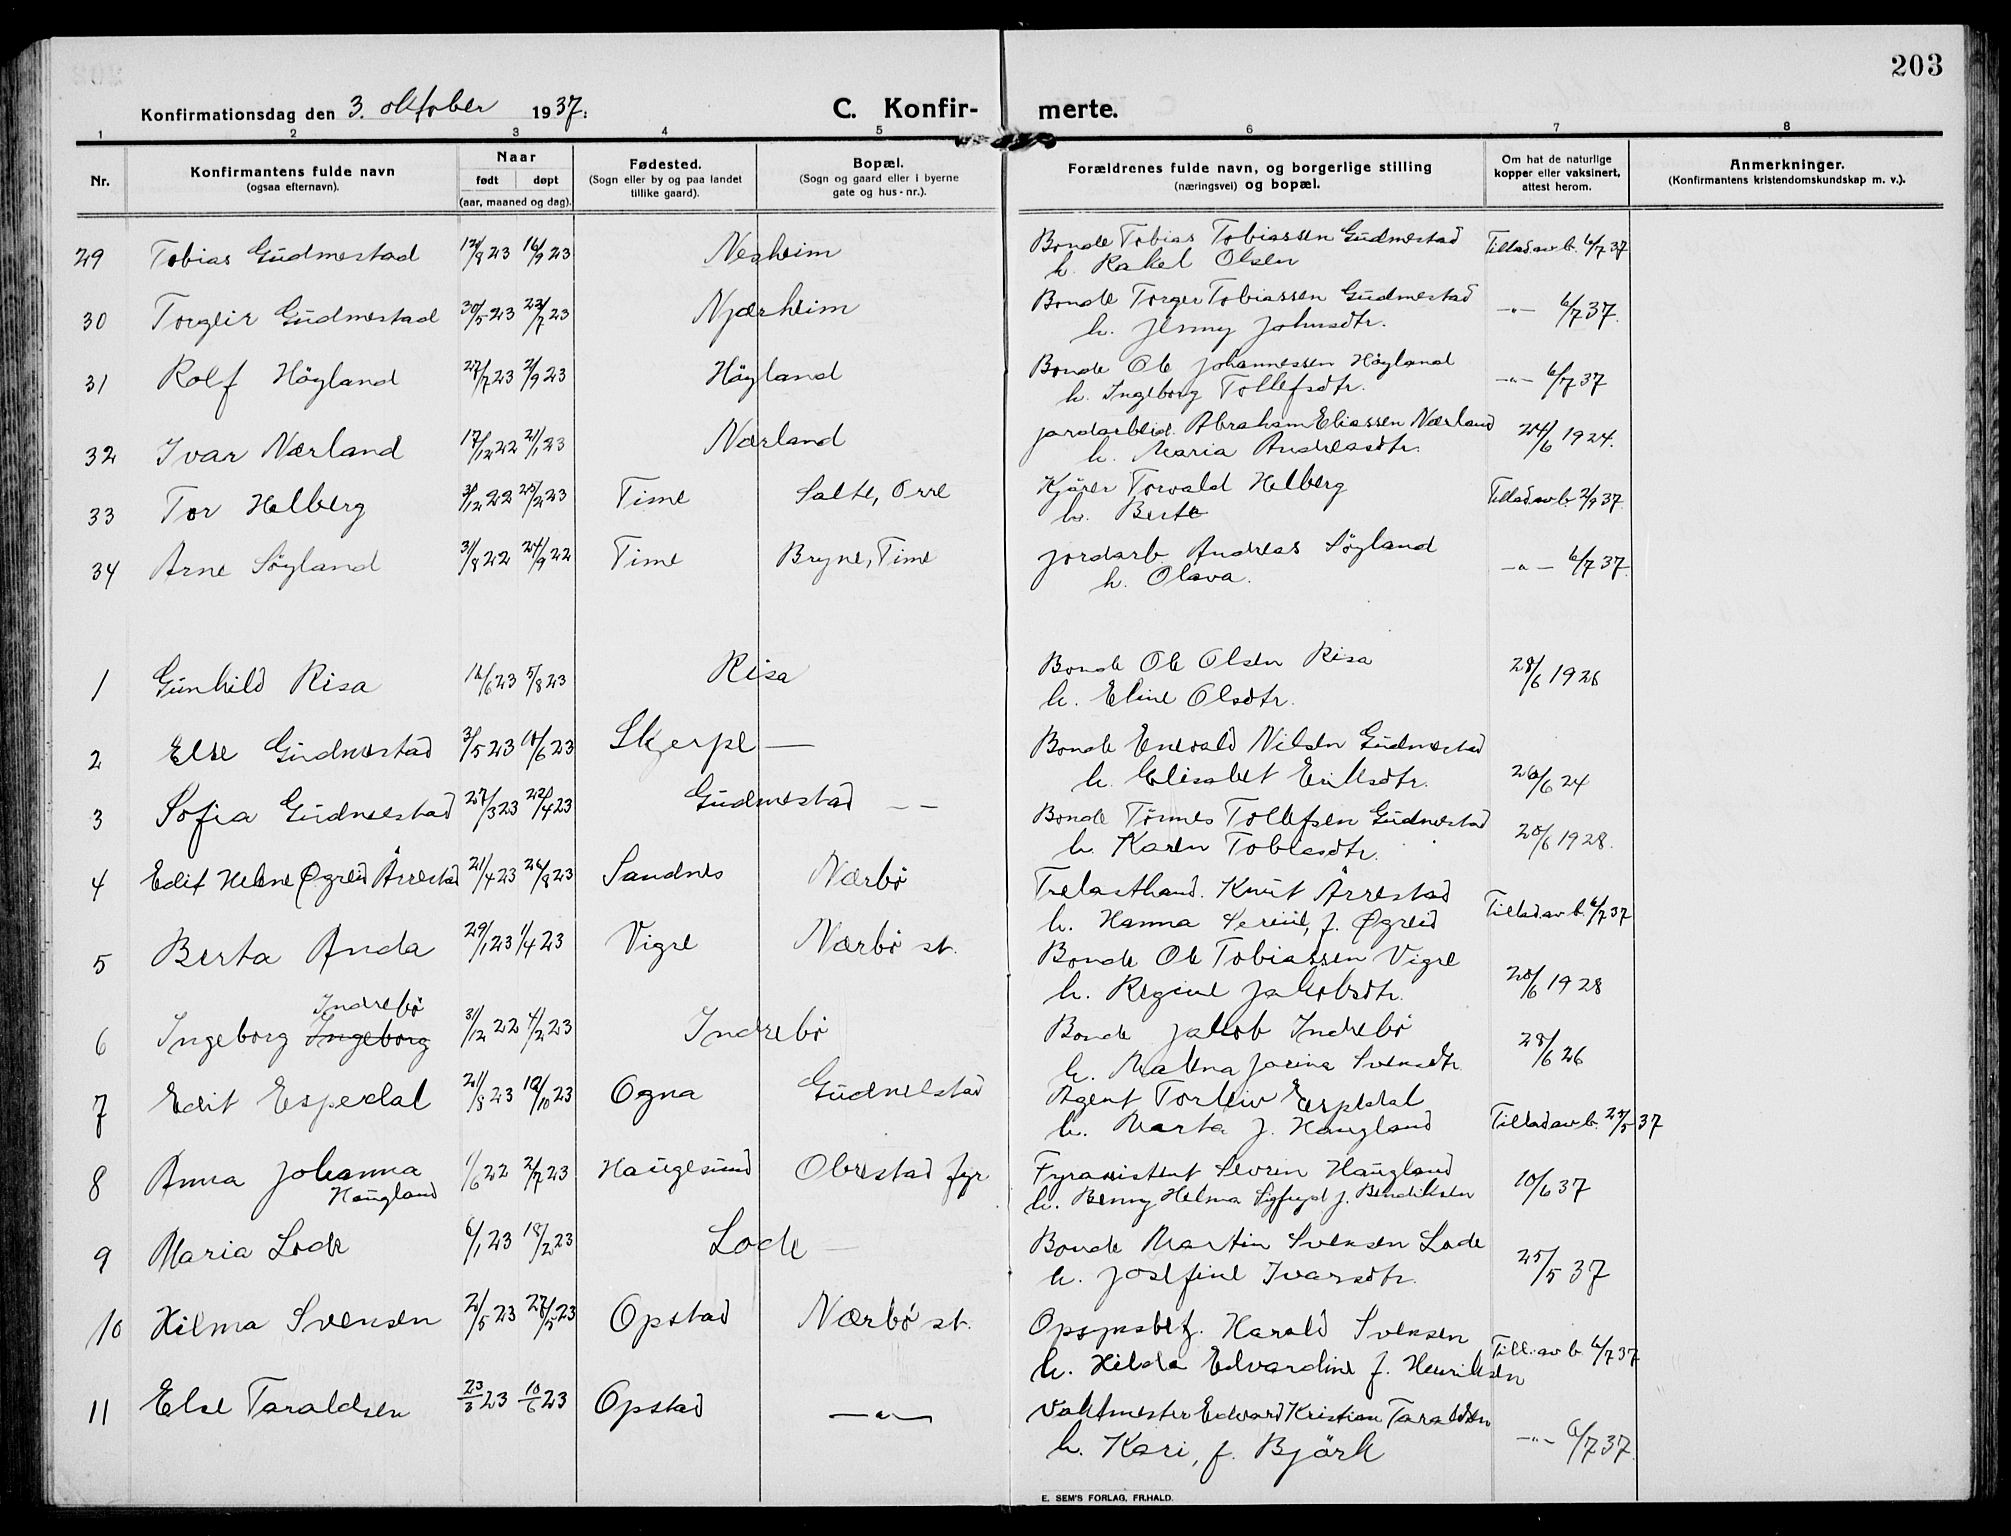 203
Konfirmationsdag den 3. oktober 1937.
C. Konfir- merte.
1 2 3 4 5 6 7 8
Nr.
Konfirmantens fulde navn
(ogsaa efternavn).
Naar
født døpt
(aar, maaned og dag).
Fødested.
(Sogn eller by og paa landet
tillike gaard).
Bopæl.
(Sogn og gaard eller i byerne
gate og hus-nr.).
Forældrenes fulde navn, og borgerlige stilling
(næringsvei) og bopæl.
Om hat de naturlige
kopper eller vaksinert,
attest herom.
Anmerkninger.
(Konfirmantens kristendomskundskap m. v.).
29 Tobias Gudmestad 12/8 23 16/9 23 Nesheim Bonde Tobias Tobiassen Gudmestad Tillad. av b. 6/7 37
h. Rakel Olsen
30 Torgeir Gudmestad 30/5 23 22/7 23 Njærheim Bonde Torger Tobiassen Gudmestad -"- 6/7 37.
h. Jenny Johnsdtr.
31 Rolf Högland 27/7 23 2/9 23 Högland Bonde Ole Johannessen Högland -"- 6/7 37
h. Ingeborg Tollefsdtr.
32 Ivar Nærland 17/12 22 21/1 23 Nærland Jordarbeid. Abraham Eliassen Nærland 24/6 1924.
h. Maria Andreasdtr.
33 Tor Helberg 31/12 22 25/2 23 Time Salte, Orre Kjörer Torvald Helberg Tillad. av b. 2/9 37.
h. Berte
34 Arne Söyland 31/8 22 24/9 22 Time Bryne, Time Jordarb. Andreas Söyland -"- 6/7 37.
h. Olava.
1 Gunhild Risa 12/6 23 5/8 23 Risa Bonde Ole Olsen Risa 28/6 1926
h. Eline Olsdtr.
2 Else Gudmestad 3/5 23 10/6 23 Skjerpe — Bonde Enevald Nilsen Gudmestad
h. Elisabet Eriksdtr. 26/6 24
3 Sofia Gudmestad 27/3 23 22/4 23 Gudmestad — — Bonde Tönnes Tollefsen Gudmestad
h. Karen Tobiasdtr. 20/6 1928.
4 Edit Helene Øgreid Årrestad 21/4 23 26/8 23 Sandnes Nærbö Trelasthand. Knut Årrestad
h. Hanna Serine, f. Øgreid Tillad. av b. 6/7 37
5 Berta Anda 29/1 23 1/4 23 Vigre Nærbö st. Bonde Ole Tobiassen Vigre
h. Regine Jakobsdtr. 20/6 1928
Indrebö
6 Ingeborg Ingeborg 31/12 22 4/2 23 Indrebö Bonde Jakob Indrebö
h. Malena Jorina Svensdtr. 28/6 26
7 Edit Espedal 21/8 23 12/10 23 Ogna Gudmestad Agent Torleiv Espedal
h. Marta f. Haugland Tillad av b. 25/5 37
8 Anna Johanna 1/6 22 2/7 23 Haugesund Obrestad fyr Fyrasistent Severin Haugland
Haugland h. Benny Helma Sigfryd f. Bendiktsen 10/6 37
9 Maria Lode 6/1 23 18/2 23 Lode — Bonde Martin Svensen Lode
h. Josefine Ivarsdtr. 25/5 37
10 Hilma Svensen 2/5 23 27/5 23 Opstad Nærbö st. Opsynsbetj. Harald Svensen
h. Hilda Edvardine f. Henriksen Till. av b. 6/7 37
11 Else Taraldsen 23/3 23 10/6 23 Opstad —"— Vaktmester Edvard Kristian Taraldsen
h. Kari, f. Björk -"- 6/7 37.
E. SEM'S FORLAG, FR.HALD.